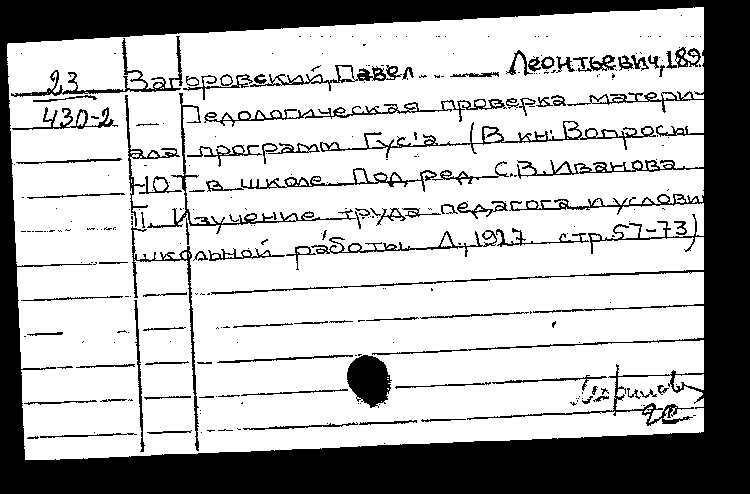 23 Загоровский, Павел Леонтьевич, 189
430-2 Педологическая проверка матери-
ала программ Гус'а. (В кн: Вопросы
НОТ в школе. Под ред. С.В. Иванова.
II. Изучение труда педагога и услови
школьной работы. Л., 1927. стр. 57-73)